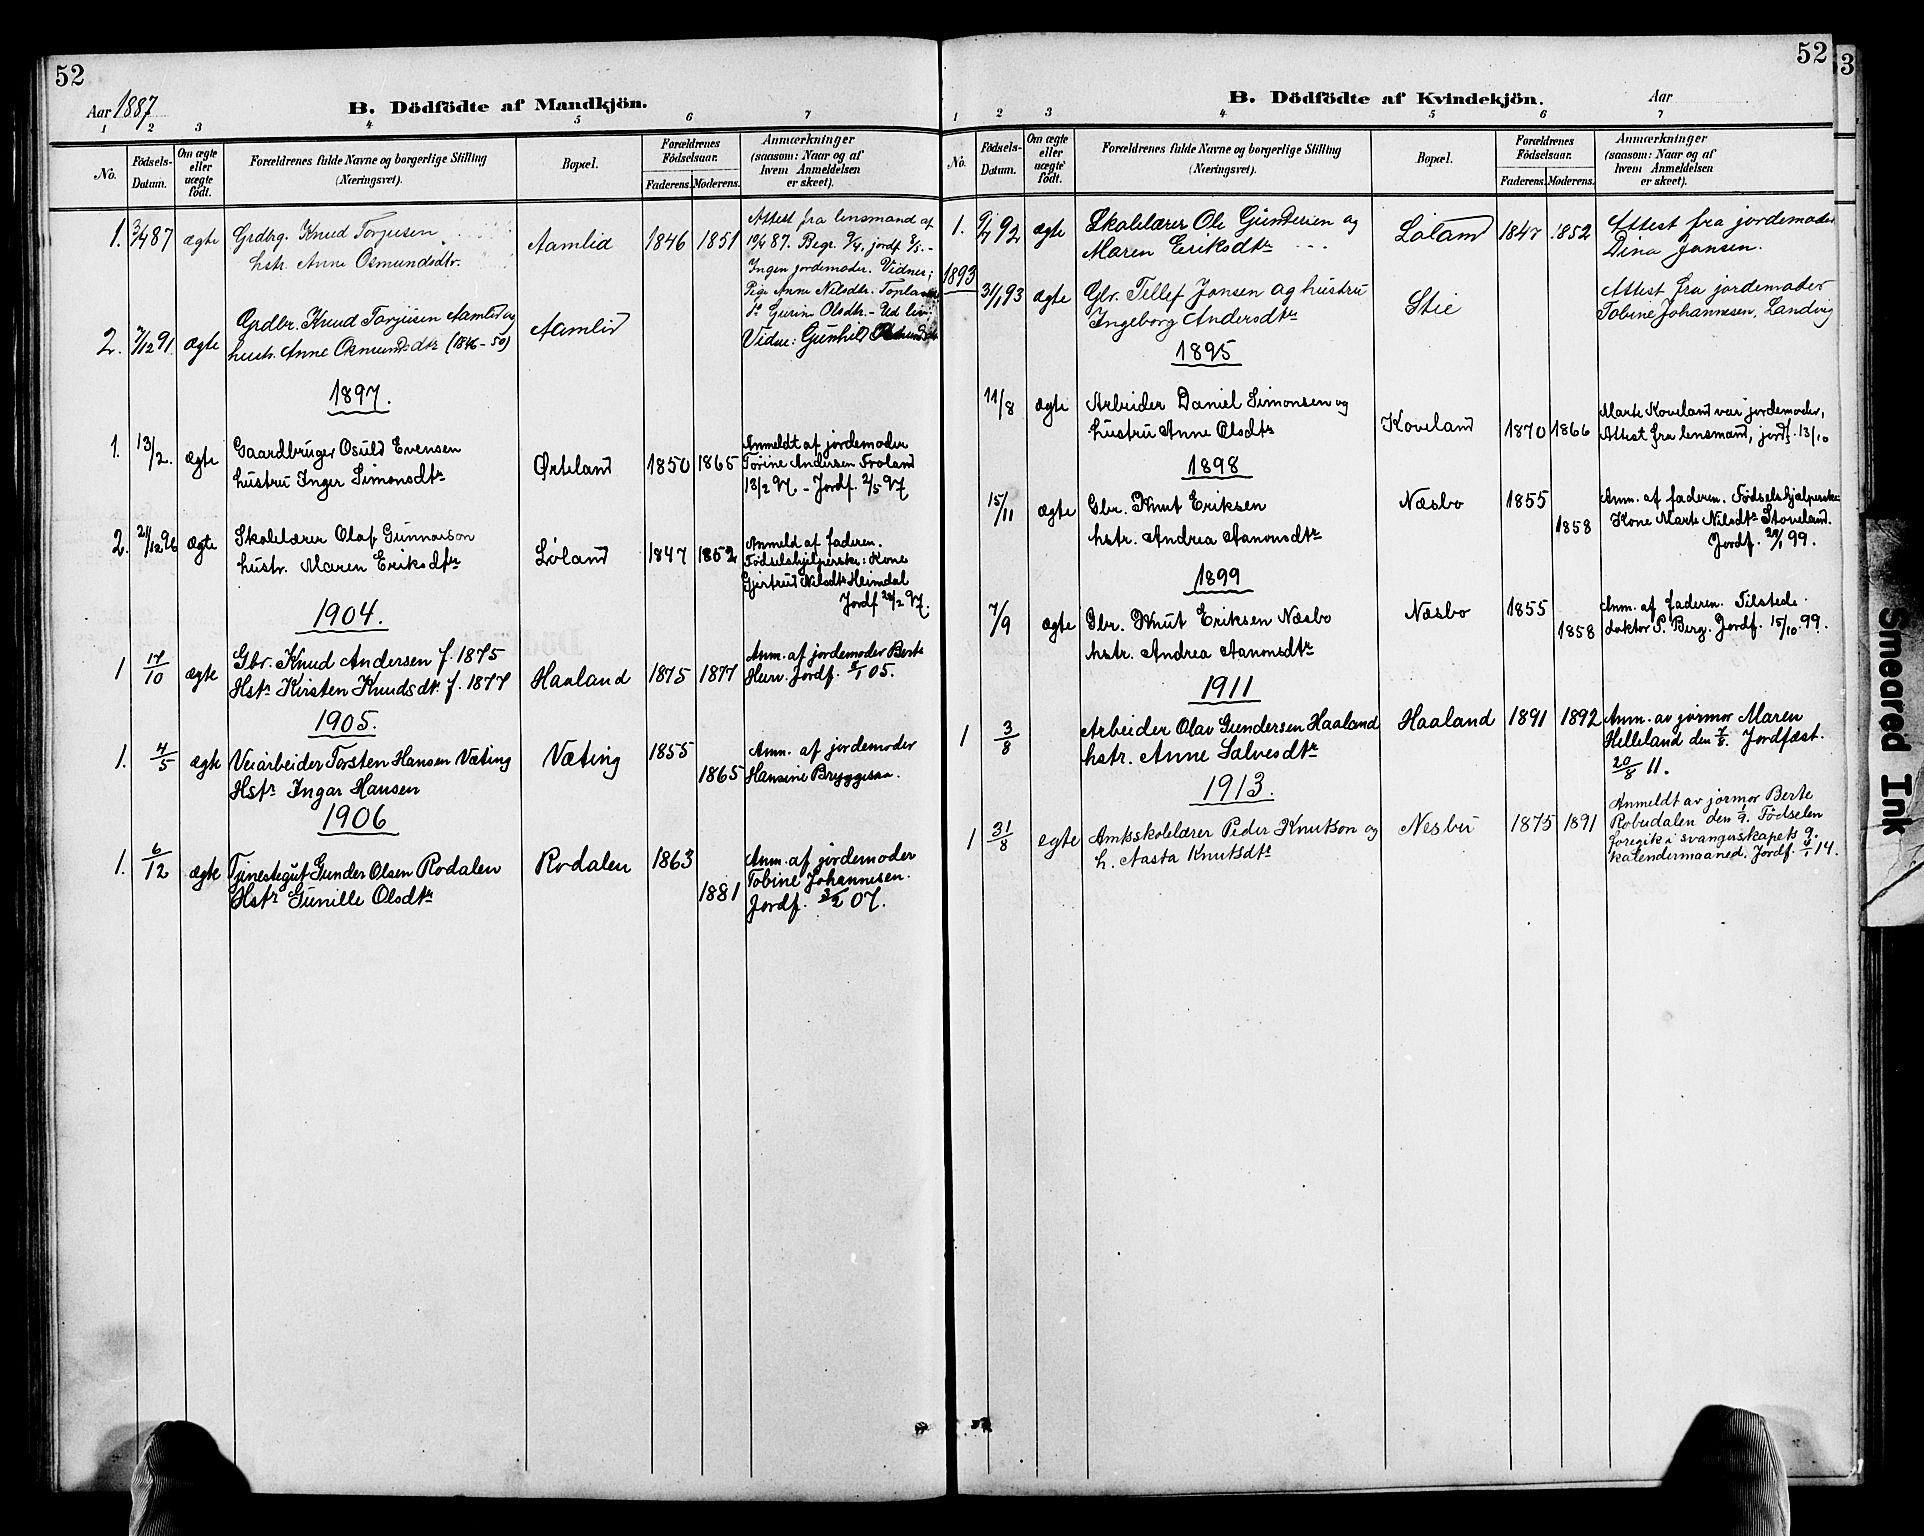 52
Aar 1887
B. Dödfödte af Mandkjön.
1 2 3 4 5 6 7
No.
Födsels-
Datum.
Om ægte
eller
uægte
født.
Forældrenes fulde Navne og borgerlige Stilling
(Næringsvei).
Bopæl.
Forældrenes
Födselsaar.
Faderens. Moderens.
Anmærkninger
(saasom: Naar og af
hvem Anmeldelsen
er skeet).
1. 3/4 87 ægte Grdbrg. Knud Torjusen
hstr. Anne Osmundsdtr. Aamlid 1846 1851
Attest fra lensmand af
19/4 87. Begr. 9/4, jordf. 8/5. -
Ingen jordemoder. Vidner:
Pige Anne Nilsdtr. Topland
Gurine Olsdtr. - Ud
2. 7/12 91. ægte Grdbr. Knud Torjusen Aamlid og
hustr. Anne Osmundsdtr (1846-50) Aamlid
Vidne: Gunhild
1897.
1. 13/2. ægte Gaardbruger Osuld Evensen
hustru Inger Simonsdtr Ørteland 1850 1865
Anmeldt af jordemoder
Torine Andersen Froland
13/2 97 - Jordf. 2/5 97
2. 21/12 96 ægte Skolelærer Olaf Gunnarson
hustr. Maren Eriksdtr Løland 1847 1852
Anmeld af faderen.
Fødselshjelperske: Kone
Gjertrud Nilsdtr Heimdal
Jordf 28/2 97.
1904.
1 17/10 ægte Gbr. Knud Andersen f. 1875
Hstr Kirsten Knudsdtr f. 1877 Haaland 1875 1877
Anm. af jordemoder Berte
Jordf. 8/1 05.
1905.
1. 4/5 ægte Veiarbeider Torsten Hansen Væting
Hstr Ingar Hansen Væting 1855 1865
Anm. af jordemoder
Hansine Bryggesaa.
1906
1. 6/12 ægte Tjenestegut Gunder Olsen Rodalen
Hstr Gunille Olsdtr Rodalen 1863 1881
Anm. af jordemoder
Tobine Johannesen.
Jordf. 3/2 07.
52
B. Dödfödte af Kvindekjön.
Aar
1 2 3 4 5 6 7
No.
Födsels-
Datum.
Om ægte
eller
uægte
født.
Forældrenes fulde Navne og borgerlige Stilling
(Næringsvei).
Bopæl.
Forældrenes
Födselsaar.
Faderens. Moderens.
Anmærkninger
(saasom: Naar og af
hvem Anmeldelsen
er skeet).
1. 92 ægte Skolelærer Ole Gundersen og
Maren Eriksdtr Løland 1847 1852
Attest fra jordemoder
Dina Jansen.
1893
31/1 93 ægte Gbr. Tellef Jonsen og hustru
Ingeborg Andersdtr Stie
Attest fra jordemoder
Tobine Johannesen, Landvig
1895
11/8 ægte Arbeider Daniel Simonsen og
hustru Anne Olsdtr Koveland 1870 1866
Marte Koveland var jordemoder,
Attest fra lensmand, jordf. 13/10
1898
15/11 ægte Gbr. Knut Eriksen
hstr. Andrea Aanonsdtr Næsbo 1855 1858
Anm. af faderen. Fødselshjælperske
Kone Marte Nilsdtr Stoveland.
Jordf. 29/1 99.
1899
7/9 ægte Gbr. Knut Eriksen Næsbo
hstr. Andrea Aanonsdtr Næsbo 1855 1858
Anm. af faderen. Tilstede
doktor P. Berg. Jordf. 15/10 99.
1911
1 3/8 Arbeider Olav Gundersen Haaland
hstr. Anne Salvesdtr Haaland 1891 1892
Anm. av jormor Maren
Helleland den 7/8. Jordfæst.
20/8 11.
1913.
1 31/8 egte Amtsskolelærer Peder Knutson og
h. Aasta Knutsdtr Nesbu 1875 1891
Anmeldt av jormor Berte
Robudalen den 1/9. Fødselen
foregik i svangerskapets 9.
kalendermaaned. Jordf. 4/1 14.
3
Smeared Ink